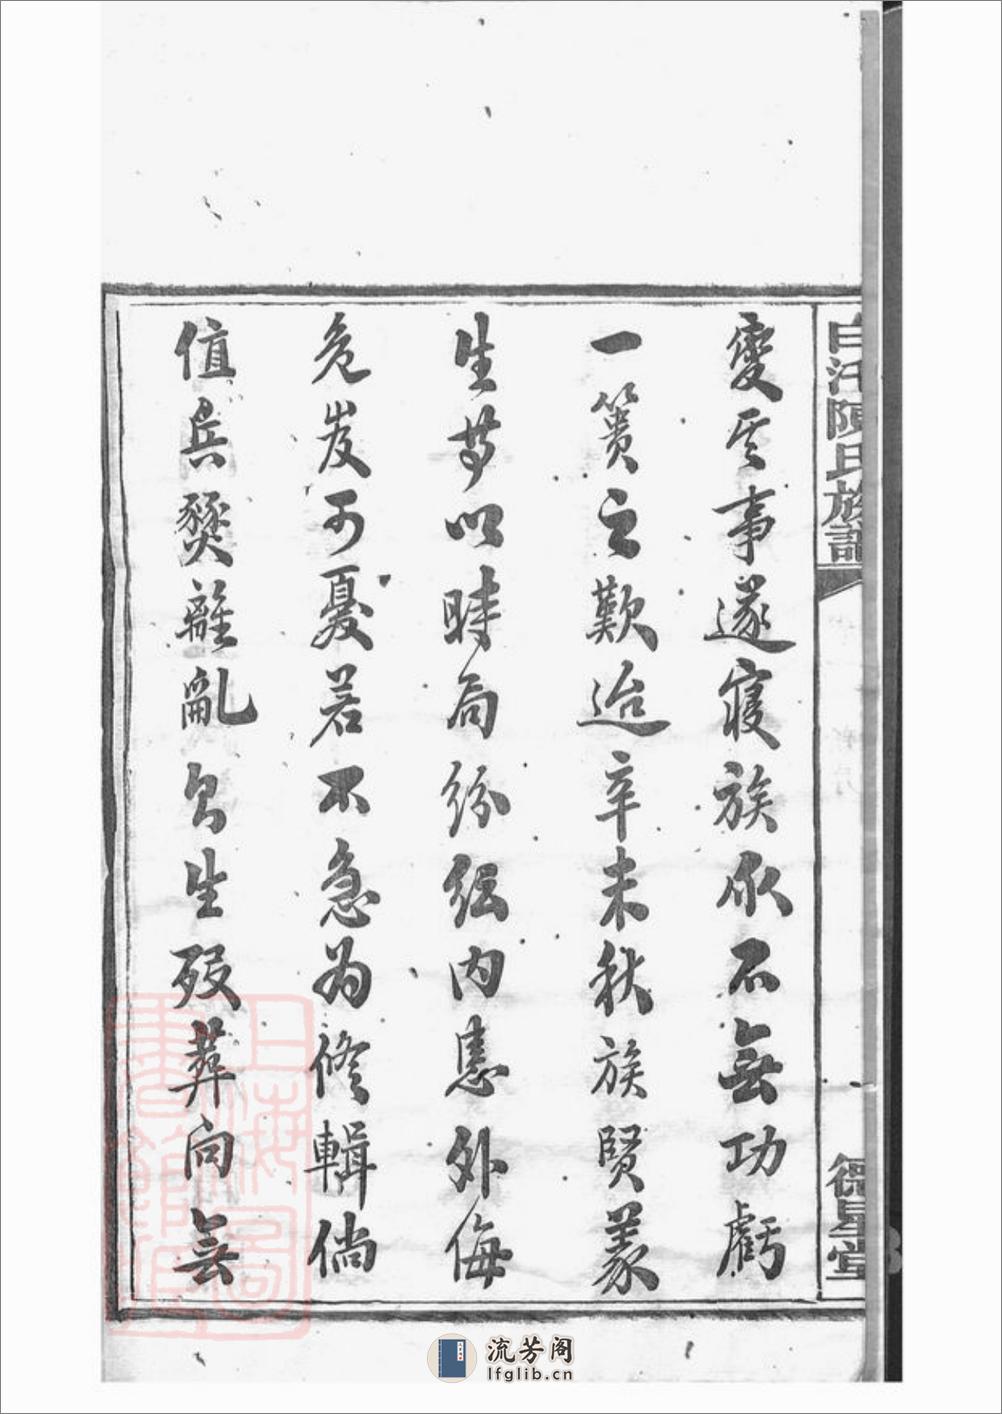 變天事遂寢族衆不無功虧
一簣之歎迨辛未秋族賢義
生等以時局紛紜內患外侮
危岌可憂若不急為修輯倘
值兵燹離亂則生歿葬向無
陳氏族譜
德星堂
上海圖書館藏
流芳阁
lfglib.cn